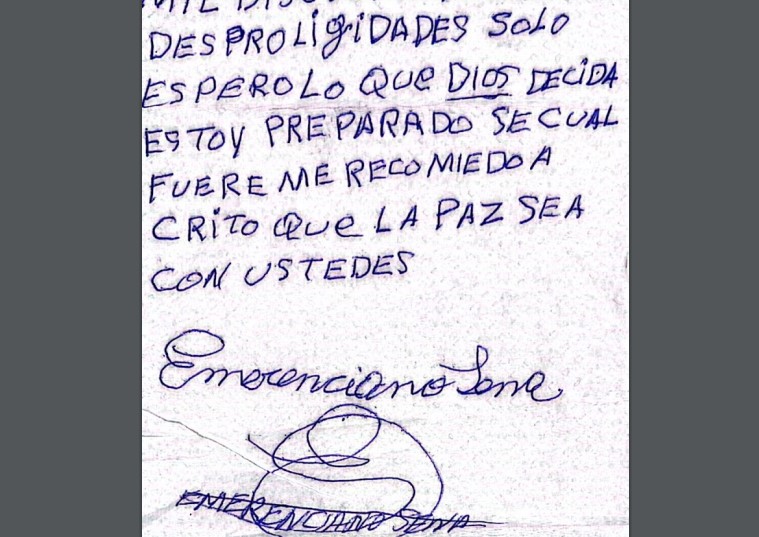 MIL
DESPROLIGIDADES SOLO
ESPERO LO QUE DIOS DECIDA
ESTOY PREPARADO SE CUAL
FUERE ME RECOMIEDO A
CRITO QUE LA PAZ SEA
CON USTEDES
Emerenciano Sena
EMERENCIANO SENA